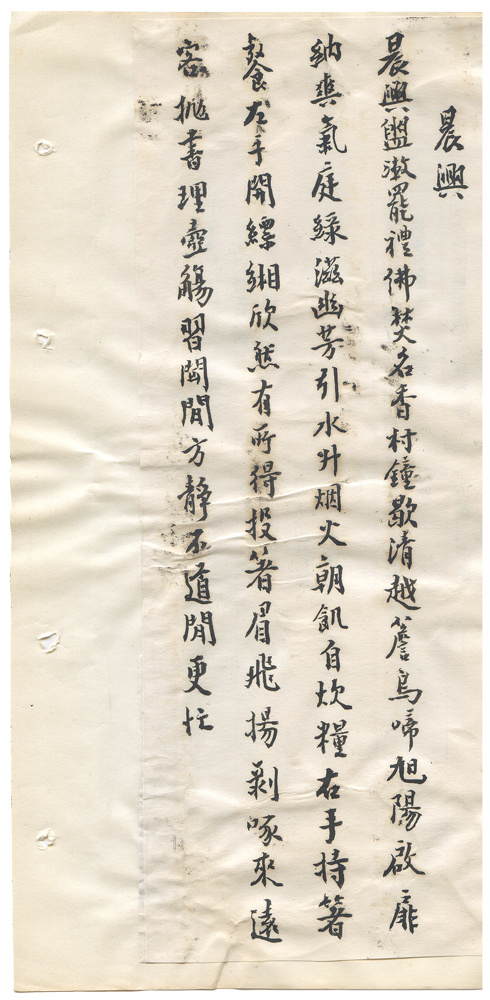 晨興
晨興盥漱罷禮佛焚名香村鐘歇清越簷烏啼旭陽啟扉
納爽氣庭綠滋幽芳引水升烟火朝飢自炊糧右手持箸
餐左手開縹緗欣然有所得投箸眉飛揚剝啄來遠
客拋書理壺觴習閙閒方靜不道閒更忙